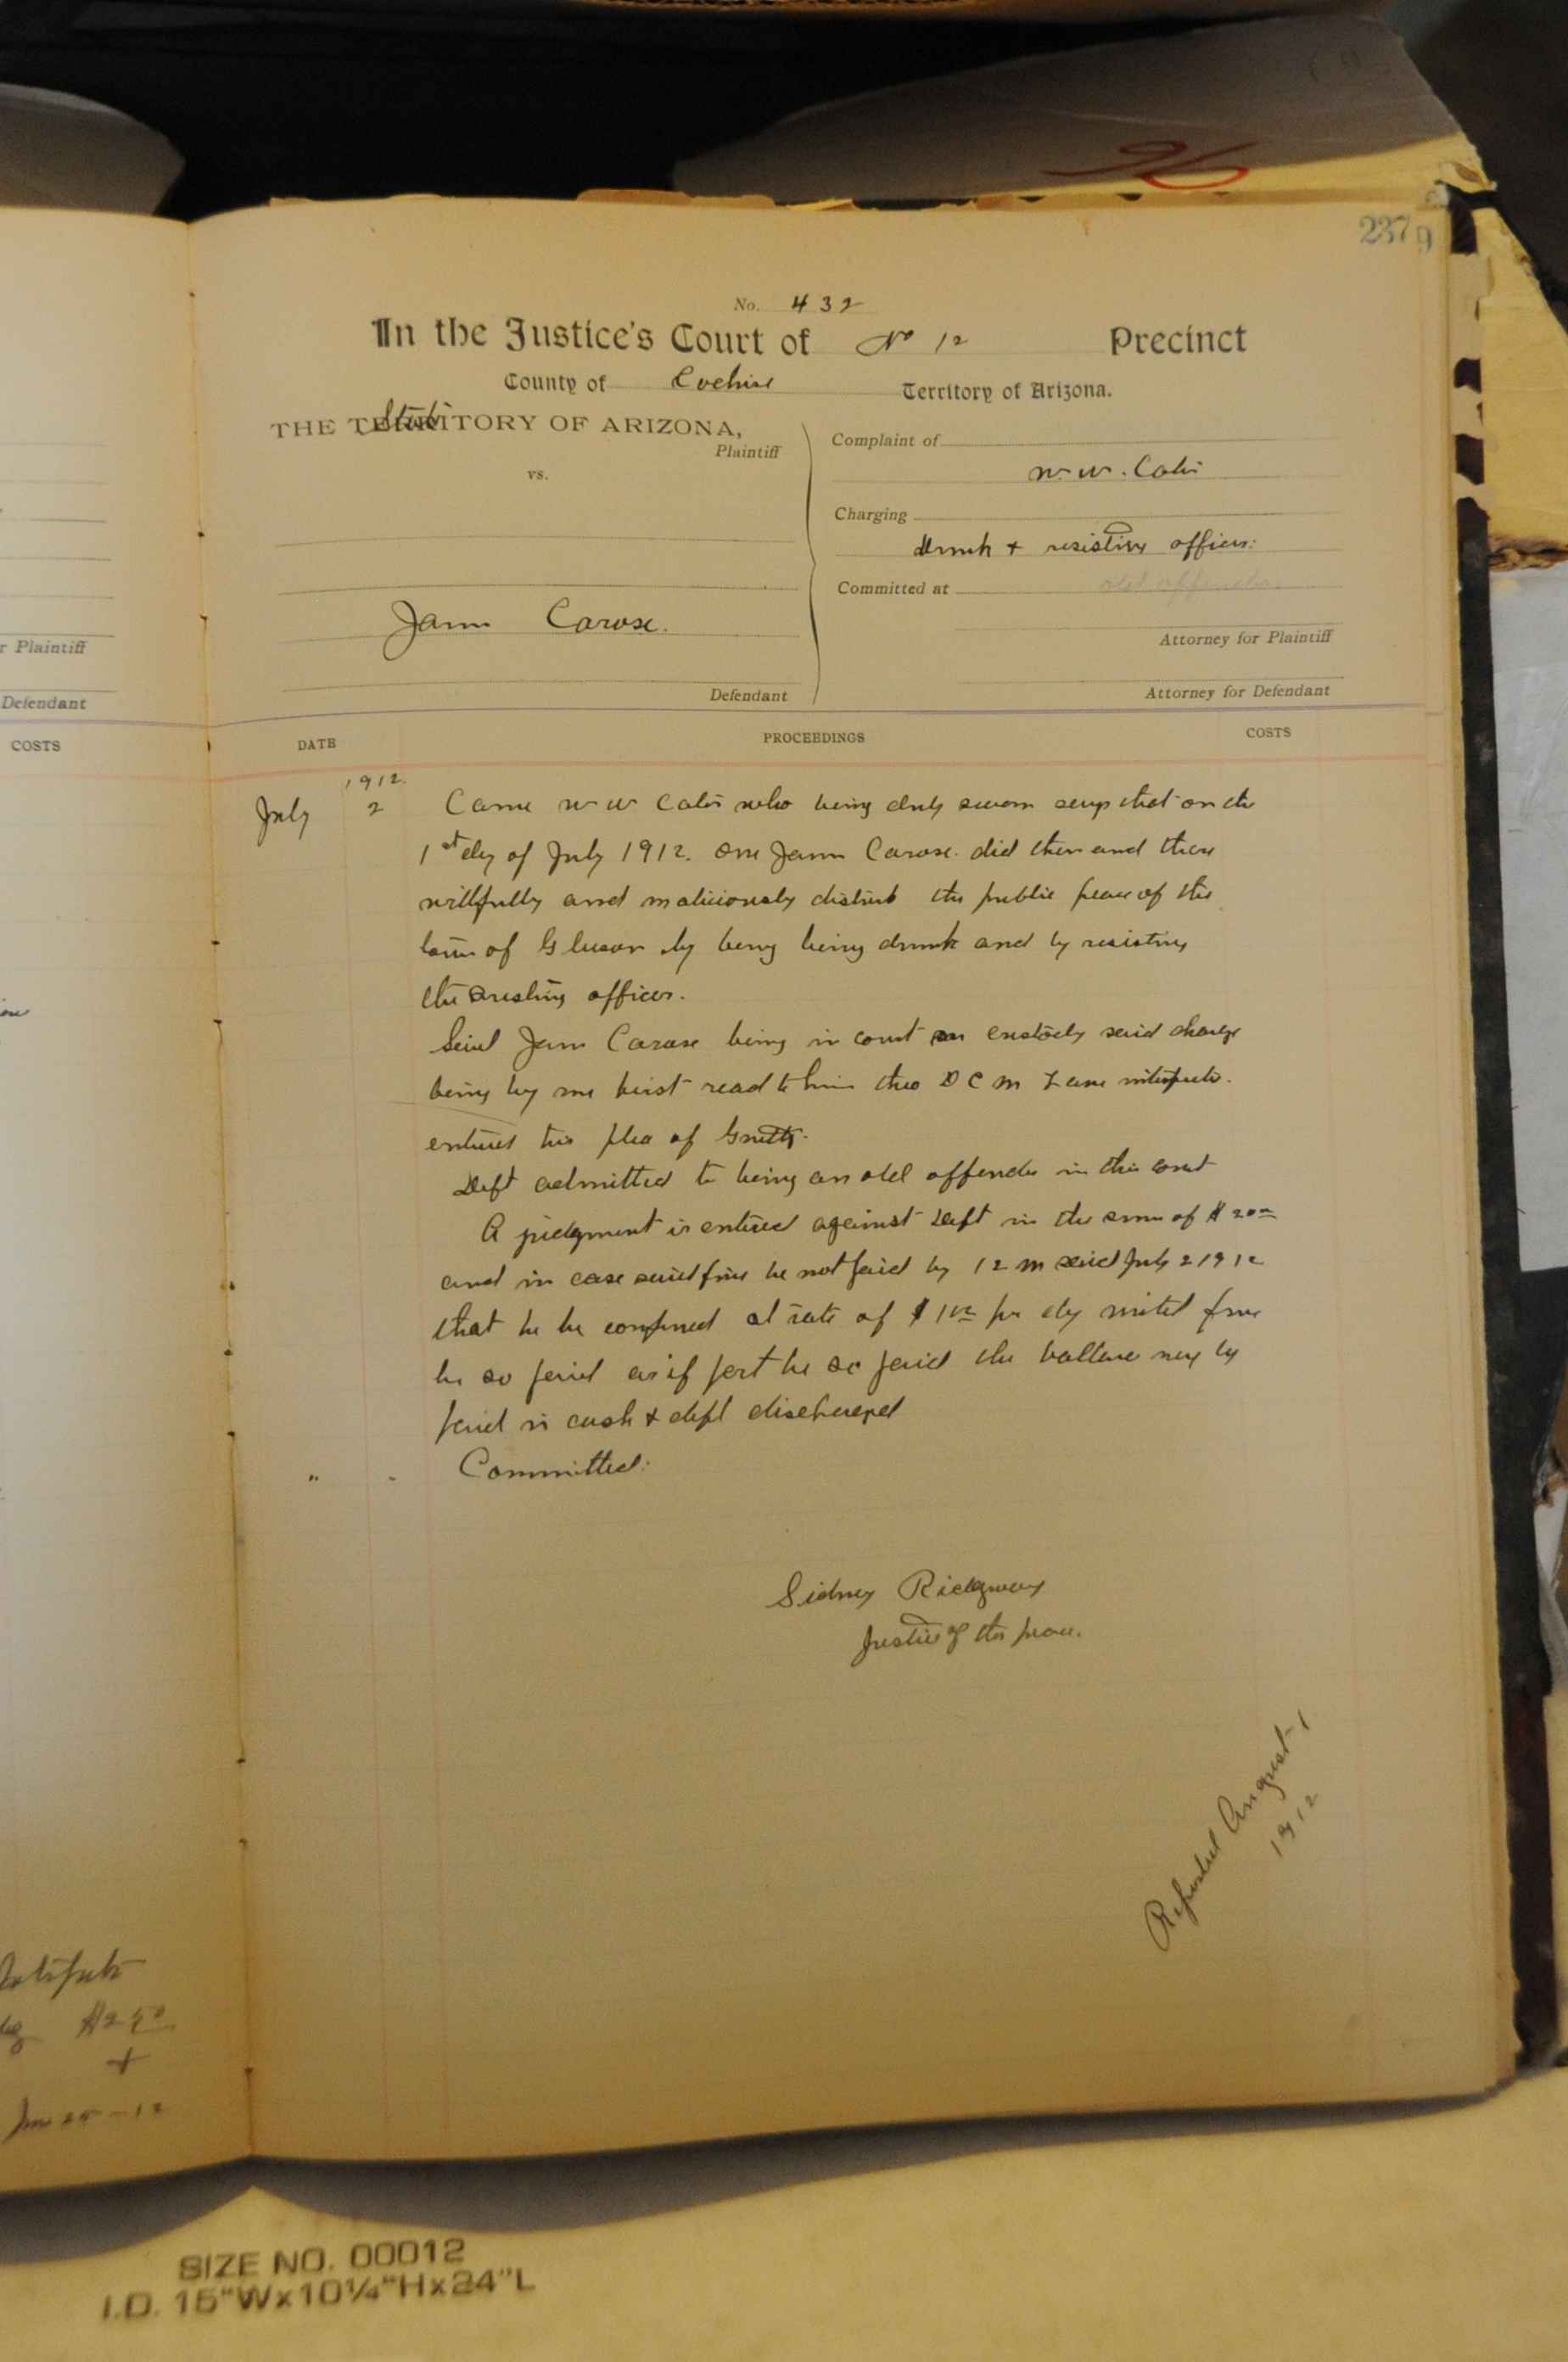 96
237 9
No. 432
In the Justice's Court of No 12 Precinct
County of Cochise Territory of Arizona.
State
THE TERRITORY OF ARIZONA,
Plaintiff
vs.
Complaint of
W. W. Cates
Charging
drunk + resisting officer:
Committed at old offender.
Attorney for Plaintiff
Attorney for Defendant
Carose.
Defendant
r Plaintiff
Defendant
COSTS
DATE PROCEEDINGS COSTS
1912.
July 2 Came W W Cates who being duly sworn says that on the
1st day of July 1912. one Carose. did then and there
willfully and maliciously disturb the public peace of the
town of Gleeson by being being drunk and by resisting
the aresting officer.
Said Carose being in court in custody said charge
being by me first read to him thro D C M Lane
enters his plea of Guilty.
Deft admitted to being an old offender in this court
A judgment is entered against Deft in the sum of $20
and in case said fine be not paid by 12 m said July 2 1912
that he be confined at rate of $1 per day until fine
be so paid or if part be so paid the ballance may be
paid in cash & deft discharged
" " Committed:
Sidney Ridgway
Justice of the peace.
Reported August 1
1912
$2 50
+
25 - 12
SIZE NO. 00012
I.D. 15"Wx10¼"Hx24"L